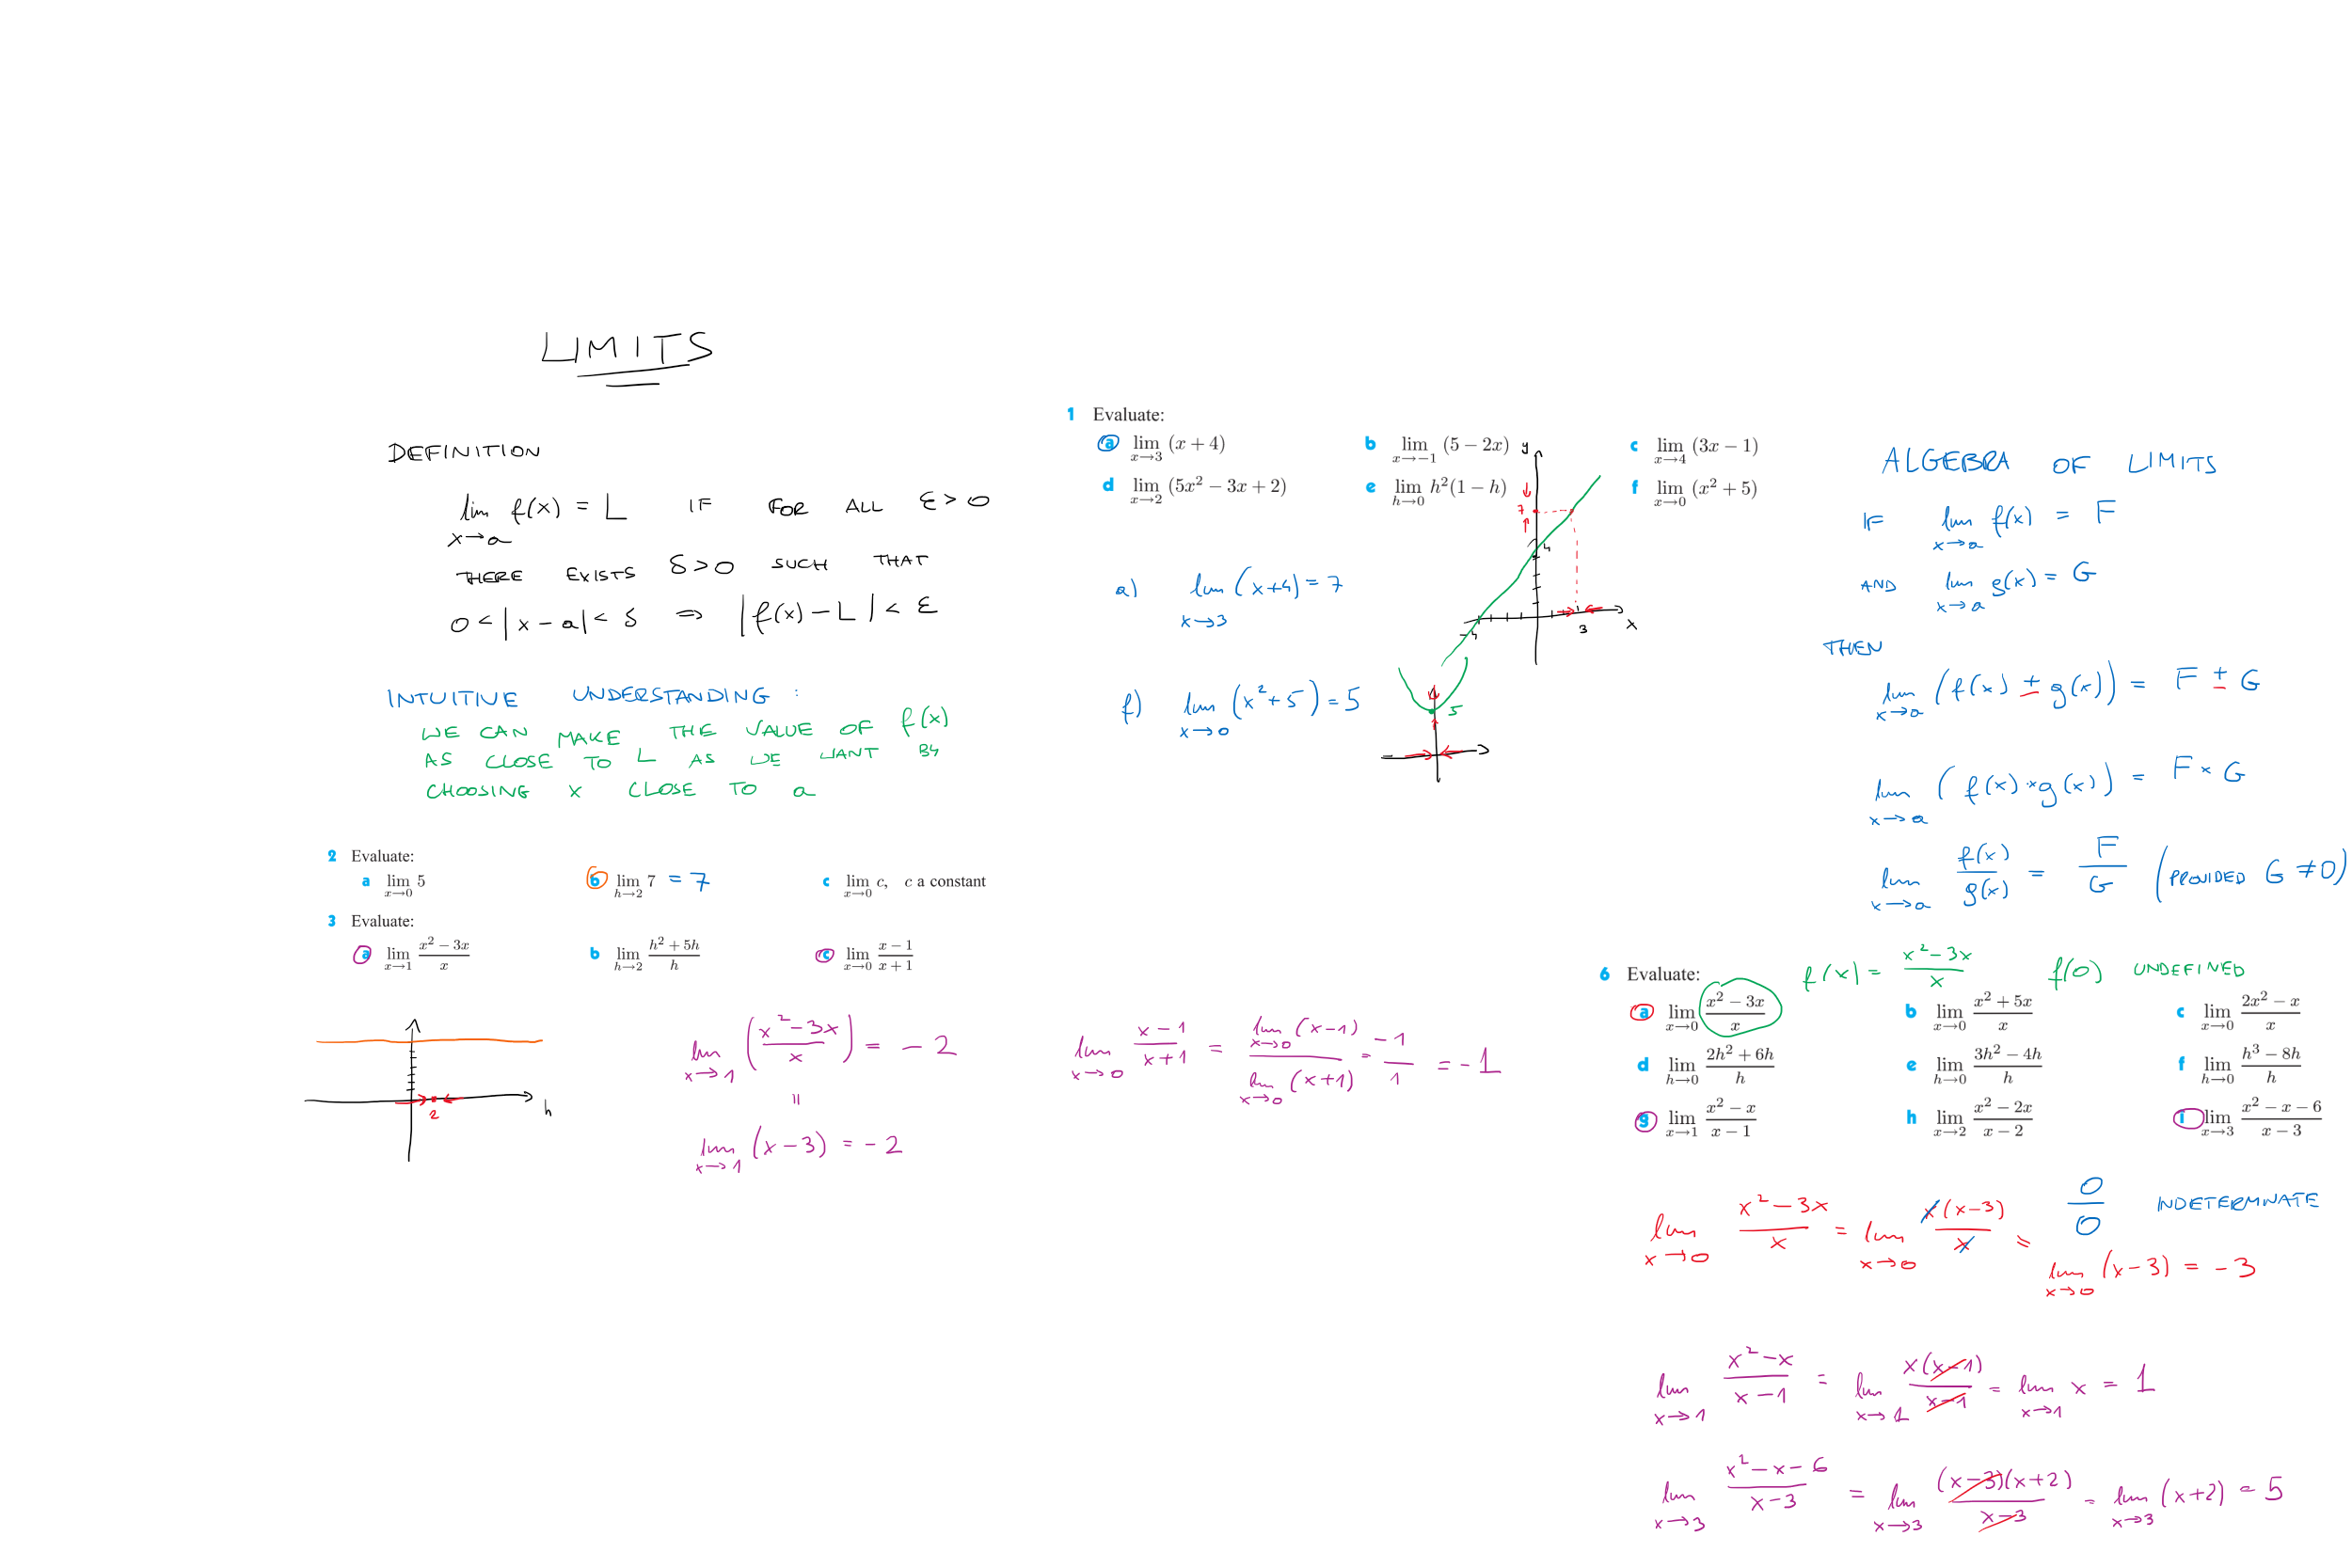 LIMITS
DEFINITION
lim f(x) = L IF FOR ALL ε > 0
x→a
THERE EXISTS δ > 0 SUCH THAT
0 < |x - a| < δ ⇒ |f(x) - L| < ε
INTUITIVE UNDERSTANDING :
WE CAN MAKE THE VALUE OF f(x)
AS CLOSE TO L AS WE WANT BY
CHOOSING x CLOSE TO a
2 Evaluate:
a lim x→0 5 b lim h→2 7 = 7 c lim x→0 c, c a constant
3 Evaluate:
a lim x→1 (x² − 3x)/x b lim h→2 (h² + 5h)/h c lim x→0 (x − 1)/(x + 1)
2 h
lim x→1 ((x² - 3x)/x) = -2
=
lim x→1 (x - 3) = -2
lim x→0 (x - 1)/(x + 1) = lim x→0 (x - 1) / lim x→0 (x + 1) = -1/1 = -1
1 Evaluate:
a lim x→3 (x + 4) b lim x→−1 (5 − 2x) c lim x→4 (3x − 1)
d lim x→2 (5x² − 3x + 2) e lim h→0 h²(1 − h) f lim x→0 (x² + 5)
a) lim x→3 (x+4) = 7
y
7
4
-4 3 x
f) lim x→0 (x² + 5) = 5
5
ALGEBRA OF LIMITS
IF lim x→a f(x) = F
AND lim x→a g(x) = G
THEN
lim x→a (f(x) ± g(x)) = F ± G
lim x→a (f(x) × g(x)) = F × G
lim x→a f(x)/g(x) = F/G (PROVIDED G ≠ 0)
f(x) = (x² - 3x)/x f(0) UNDEFINED
6 Evaluate:
a lim x→0 (x² − 3x)/x b lim x→0 (x² + 5x)/x c lim x→0 (2x² − x)/x
d lim h→0 (2h² + 6h)/h e lim h→0 (3h² − 4h)/h f lim h→0 (h³ − 8h)/h
g lim x→1 (x² − x)/(x − 1) h lim x→2 (x² − 2x)/(x − 2) i lim x→3 (x² − x − 6)/(x − 3)
0/0 INDETERMNATE
lim x→0 (x² - 3x)/x = lim x→0 x(x-3)/x = lim x→0 (x - 3) = -3
lim x→1 (x² - x)/(x - 1) = lim x→1 x(x-1)/(x-1) = lim x→1 x = 1
lim x→3 (x² - x - 6)/(x - 3) = lim x→3 (x-3)(x+2)/(x-3) = lim x→3 (x+2) = 5